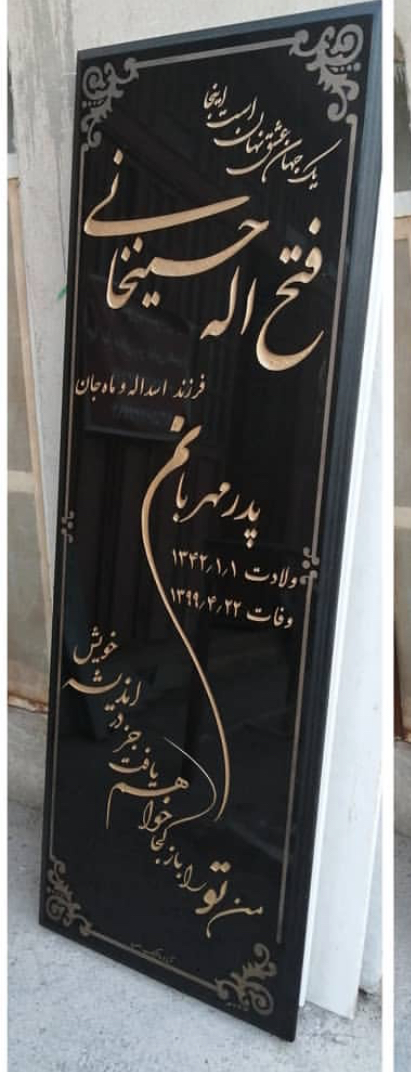 یک جهان عشق نهان است اینجا
فتح اله حسینخانی
فرزند اسداله و ماه جان
پدر مهربانم
ولادت ۱۳۴۲٫۱٫۱
وفات ۱۳۹۹٫۴٫۲۲
من تو را باز کجا خواهم یافت جز در اندیشه خویش